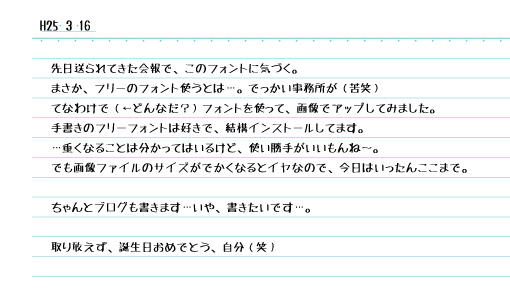 H25 3 16
先日送られてきた会報で、このフォントに気づく。
まさか、フリーのフォント使うとは…。でっかい事務所が(苦笑)
てなわけで(←どんなだ?)フォントを使って、画像でアップしてみました。
手書きのフリーフォントは好きで、結構インストールしてます。
…重くなることは分かってはいるけど、使い勝手がいいもんね~。
でも画像ファイルのサイズがでかくなるとイヤなので、今日はいったんここまで。
ちゃんとブログも書きます…いや、書きたいです…。
取り敢えず、誕生日おめでとう、自分(笑)